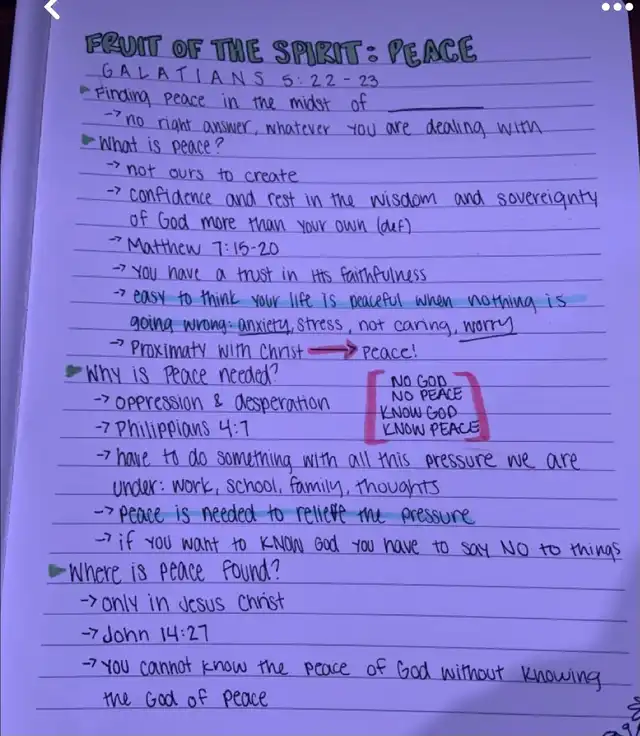 FRUIT OF THE SPIRIT: PEACE
GALATIANS 5:22-23
Finding peace in the midst of ________
→ no right answer, whatever you are dealing with
What is peace?
→ not ours to create
→ confidence and rest in the wisdom and sovereignty
of God more than your own (def)
→ Matthew 7:15-20
→ you have a trust in His faithfulness
→ easy to think your life is peaceful when nothing is
going wrong: anxiety, stress, not caring, worry
→ Proximaty with Christ → Peace!
Why is Peace needed?
→ oppression & desperation
→ Philippians 4:7
NO GOD
NO PEACE
KNOW GOD
KNOW PEACE
→ have to do something with all this pressure we are
under: work, school, family, thoughts
→ Peace is needed to relieve the pressure
→ if you want to KNOW God you have to say NO to things
Where is peace found?
→ only in Jesus Christ
→ John 14:27
→ you cannot know the peace of God without knowing
the God of peace